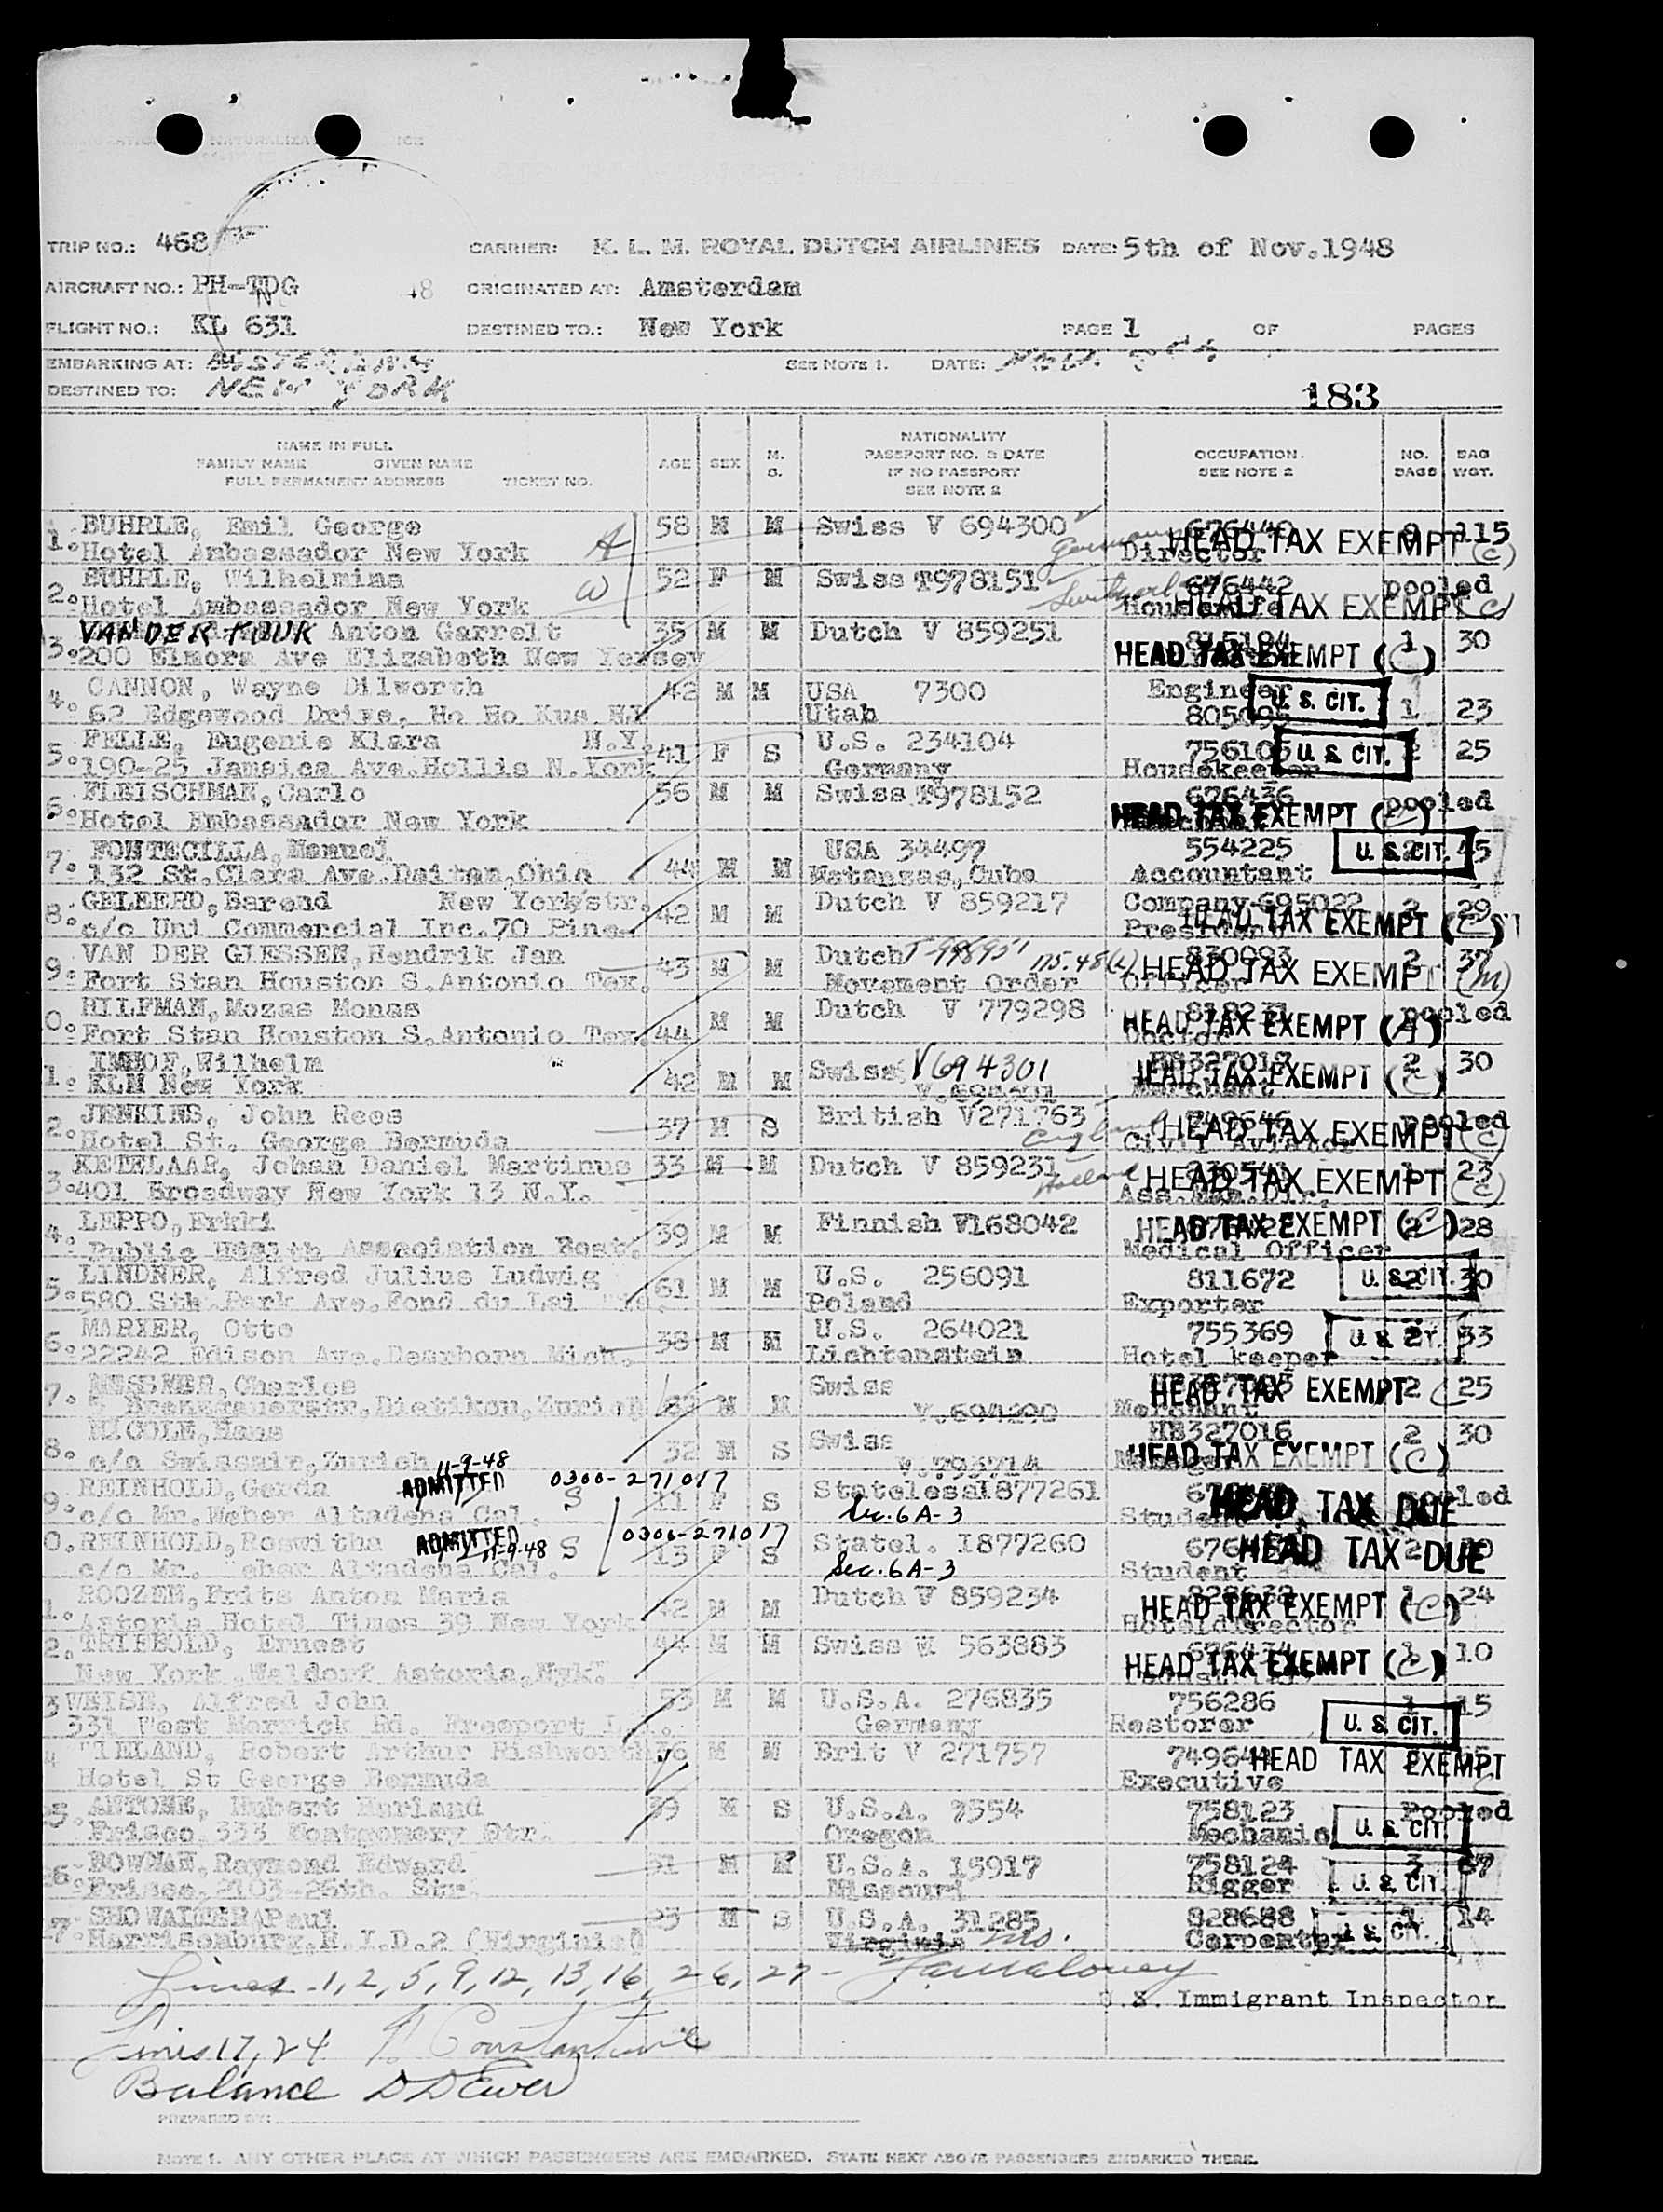 TRIP NO.: 468
CARRIER: K. L. M. ROYAL DUTCH AIRLINES DATE: 5th of Nov.1948
AIRCRAFT NO.: PH-TDG
ORIGINATED AT: Amsterdam
FLIGHT NO.: KL 631
DESTINED TO.: New York
PAGE 1 OF PAGES
EMBARKING AT: AMSTERDAM
SEE NOTE 1. DATE: NOV. 5th
DESTINED TO: NEW YORK
183
NAME IN FULL
FAMILY NAME GIVEN NAME
FULL PERMANENT ADDRESS TICKET NO.
AGE SEX M. S.
NATIONALITY
PASSPORT NO. & DATE
IF NO PASSPORT
SEE NOTE 2
OCCUPATION.
SEE NOTE 2
NO. BAGS
BAG WGT.
1. BUHRLE, Emil George 58 M M Swiss V 694300 676440 115
Hotel Ambassador New York Germany Director HEAD TAX EXEMPT (C)
2. BUHRLE, Wilhelmina 52 F M Swiss T978151 676442 pooled
Hotel Ambassador New York Housewife HEAD TAX EXEMPT (C)
3. VAN DER TOUK Anton Garrelt 35 M M Dutch V 859251 1 30
200 Elmora Ave Elizabeth New Yersey HEAD TAX EXEMPT (C)
4. CANNON, Wayne Dilworth 42 M M USA 7300 Engineer U. S. CIT.
62 Edgewood Drive, Ho Ho Kus NJ Utah 1 23
5. FELLE, Eugenie Klara N.Y. 41 F S U.S. 234104 756105 U. S. CIT. 25
190-25 Jamaica Ave.Hollis N.York Germany Housekeeper
6. FLEISCHMAN, Carlo 56 M M Swiss T978152 676436 pooled
Hotel Embassador New York HEAD TAX EXEMPT (C)
7. FONTECILLA, Manuel 44 M M USA 34497 554225 U. S. CIT. 45
132 St.Clara Ave.Daiton, Ohio Matanzas, Cuba Accountant
8. GELEERD, Barend New York str. 42 M M Dutch V 859217 Company 695022 2 29
c/o Uni Commercial Inc.70 Pine- President HEAD TAX EXEMPT (C)
9. VAN DER GIESSEN, Hendrik Jan 43 M M Dutch 830093 2 37
Fort Stan Houston S.Antonio Tex. Movement Order Officer HEAD TAX EXEMPT (M)
0. HILFMAN, Mozas Monas 44 M M Dutch V 779298 818231 pooled
Fort Stan Houston S.Antonio Tex. Doctor HEAD TAX EXEMPT (A)
1. IMHOF, Wilhelm 42 M M Swiss V694301 HB327018 2 30
KLM New York Merchant HEAD TAX EXEMPT (C)
2. JENKINS, John Rees 37 M S British V271763 749646 pooled
Hotel St. George Bermuda England Civil Aviator HEAD TAX EXEMPT (C)
3. KETELAAR, Johan Daniel Martinus 33 M M Dutch V 859231 23
401 Broadway New York 13 N.Y. Holland HEAD TAX EXEMPT (C)
4. LEPPO, Erkki 39 M M Finnish V168042 2 28
Public Health Association Bost. Medical Officer HEAD TAX EXEMPT (C)
5. LINDNER, Alfred Julius Ludwig 61 M M U.S. 256091 811672 U. S. CIT. 2 30
580 Sth.Park Ave.Fond du Lai Poland Exporter
6. MARXER, Otto 38 M M U.S. 264021 755369 U. S. CIT. 2 33
22242 Edison Ave.Dearborn Mich. Lichtenstein Hotel keeper
7. MESSMER, Charles M M Swiss 2 25
Dietikon, Zurich V.694290 Merchant HEAD TAX EXEMPT C
8. NICOLE, Hans 32 M S Swiss HB327016 2 30
c/o Swissair, Zurich V.793714 HEAD TAX EXEMPT (C)
9. REINHOLD, Gerda ADMITTED 11-9-48 0300-271017 S 11 F S Stateless I877261 pooled
c/o Mr.Weber Altadena Cal. Sec. 6A-3 Student HEAD TAX DUE
0. REINHOLD, Roswitha ADMITTED 11-9-48 S 0300-271017 13 F S Statel. I877260 HEAD TAX DUE
c/o Mr. Weber Altadena Cal. Sec. 6A-3 Student
1. ROOZEN, Frits Anton Maria 42 M M Dutch V 859234 828638 1 24
Astoria Hotel Times 39 New York Hoteldirector HEAD TAX EXEMPT (C)
2. TRIEBOLD, Ernest 44 M M Swiss V 563883 676434 1 10
New York Waldorf Astoria, Nyk. HEAD TAX EXEMPT (C)
3 WEISE, Alfred John 53 M M U.S.A. 276835 756286 1 15
331 West Merrick Rd. Freeport L.I. Germany Restorer U. S. CIT.
4 WIELAND, Robert Arthur Rishworth 36 M M Brit V 271757 HEAD TAX EXEMPT
Hotel St George Bermuda Executive
5. ANTONE, Hubert Harland 39 M S U.S.A. 7554 758123 Pooled
Frisco 333 Montgomery Str. Oregon Mechanic U. S. CIT.
6. BOWMAN, Raymond Edward 31 M M U.S.A. 15917 758124 3 67
Frisco, 2103-26th. Str. Missouri Rigger U. S. CIT.
7. SHOWALTER Paul 23 M S U.S.A. 31285 828688 1 14
Harrisonburg, R.I.D.2 (Virginia) Virginia Mo. Carpenter U. S. CIT.
Lines 1, 2, 5, 9, 12, 13, 16, 26, 27 - J.a.Maloney
U.S. Immigrant Inspector
Lines 17, 24 Constantine
Balance D D Ewer
PREPARED BY:
NOTE 1. ANY OTHER PLACE AT WHICH PASSENGERS ARE EMBARKED. STATE NEXT ABOVE PASSENGERS EMBARKED THERE.